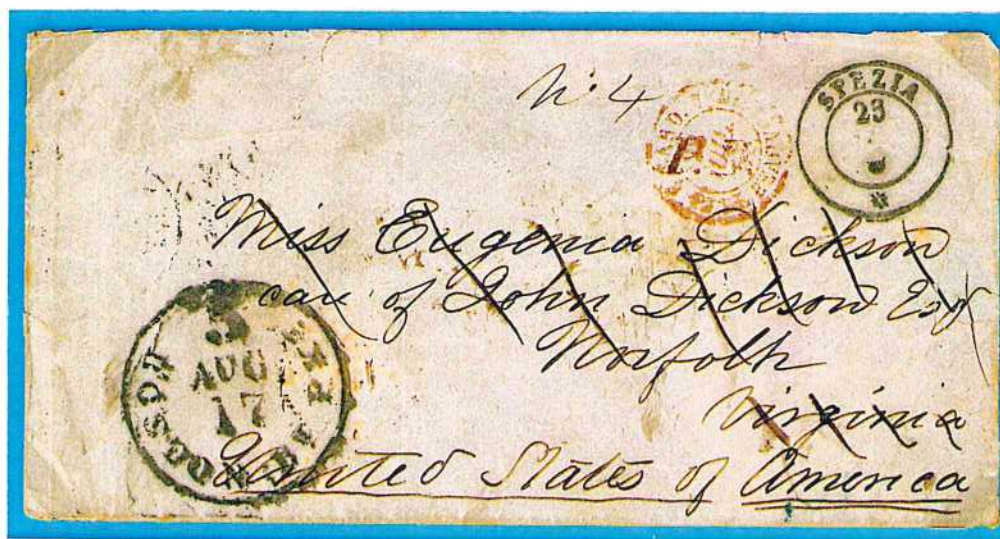 No. 4
SPEZIA
23
P.
Miss Eugenia Dickson
care of John Dickson Esqr
Norfolk
Virginia
United States of America
BOSTON BR. PKT
AUG
17